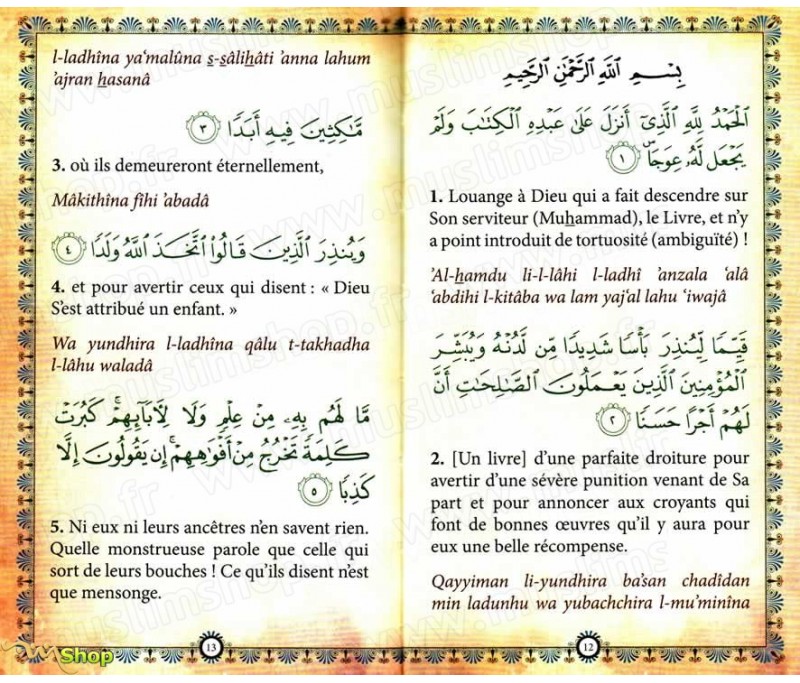 بِسْمِ اللَّهِ الرَّحْمَٰنِ الرَّحِيمِ
الْحَمْدُ لِلَّهِ الَّذِي أَنزَلَ عَلَىٰ عَبْدِهِ الْكِتَابَ وَلَمْ
يَجْعَل لَّهُ عِوَجًا ۜ ١
1. Louange à Dieu qui a fait descendre sur
Son serviteur (Muhammad), le Livre, et n'y
a point introduit de tortuosité (ambiguïté) !
'Al-hamdu li-l-lâhi l-ladhî 'anzala 'alâ
'abdihi l-kitâba wa lam yaj'al lahu 'iwajâ
قَيِّمًا لِّيُنذِرَ بَأْسًا شَدِيدًا مِّن لَّدُنْهُ وَيُبَشِّرَ
الْمُؤْمِنِينَ الَّذِينَ يَعْمَلُونَ الصَّالِحَاتِ أَنَّ
لَهُمْ أَجْرًا حَسَنًا ٢
2. [Un livre] d'une parfaite droiture pour
avertir d'une sévère punition venant de Sa
part et pour annoncer aux croyants qui
font de bonnes œuvres qu'il y aura pour
eux une belle récompense.
Qayyiman li-yundhira ba'san chadîdan
min ladunhu wa yubachchira l-mu'minîna
12
l-ladhîna ya'malûna s-sâlihâti 'anna lahum
'ajran hasanâ
مَّاكِثِينَ فِيهِ أَبَدًا ٣
3. où ils demeureront éternellement,
Mâkithîna fîhi 'abadâ
وَيُنذِرَ الَّذِينَ قَالُوا اتَّخَذَ اللَّهُ وَلَدًا ٤
4. et pour avertir ceux qui disent : « Dieu
S'est attribué un enfant. »
Wa yundhira l-ladhîna qâlu t-takhadha
l-lâhu waladâ
مَّا لَهُم بِهِ مِنْ عِلْمٍ وَلَا لِآبَائِهِمْ ۚ كَبُرَتْ
كَلِمَةً تَخْرُجُ مِنْ أَفْوَاهِهِمْ ۚ إِن يَقُولُونَ إِلَّا
كَذِبًا ٥
5. Ni eux ni leurs ancêtres n'en savent rien.
Quelle monstrueuse parole que celle qui
sort de leurs bouches ! Ce qu'ils disent n'est
que mensonge.
13
Shop
www.muslimshop.fr